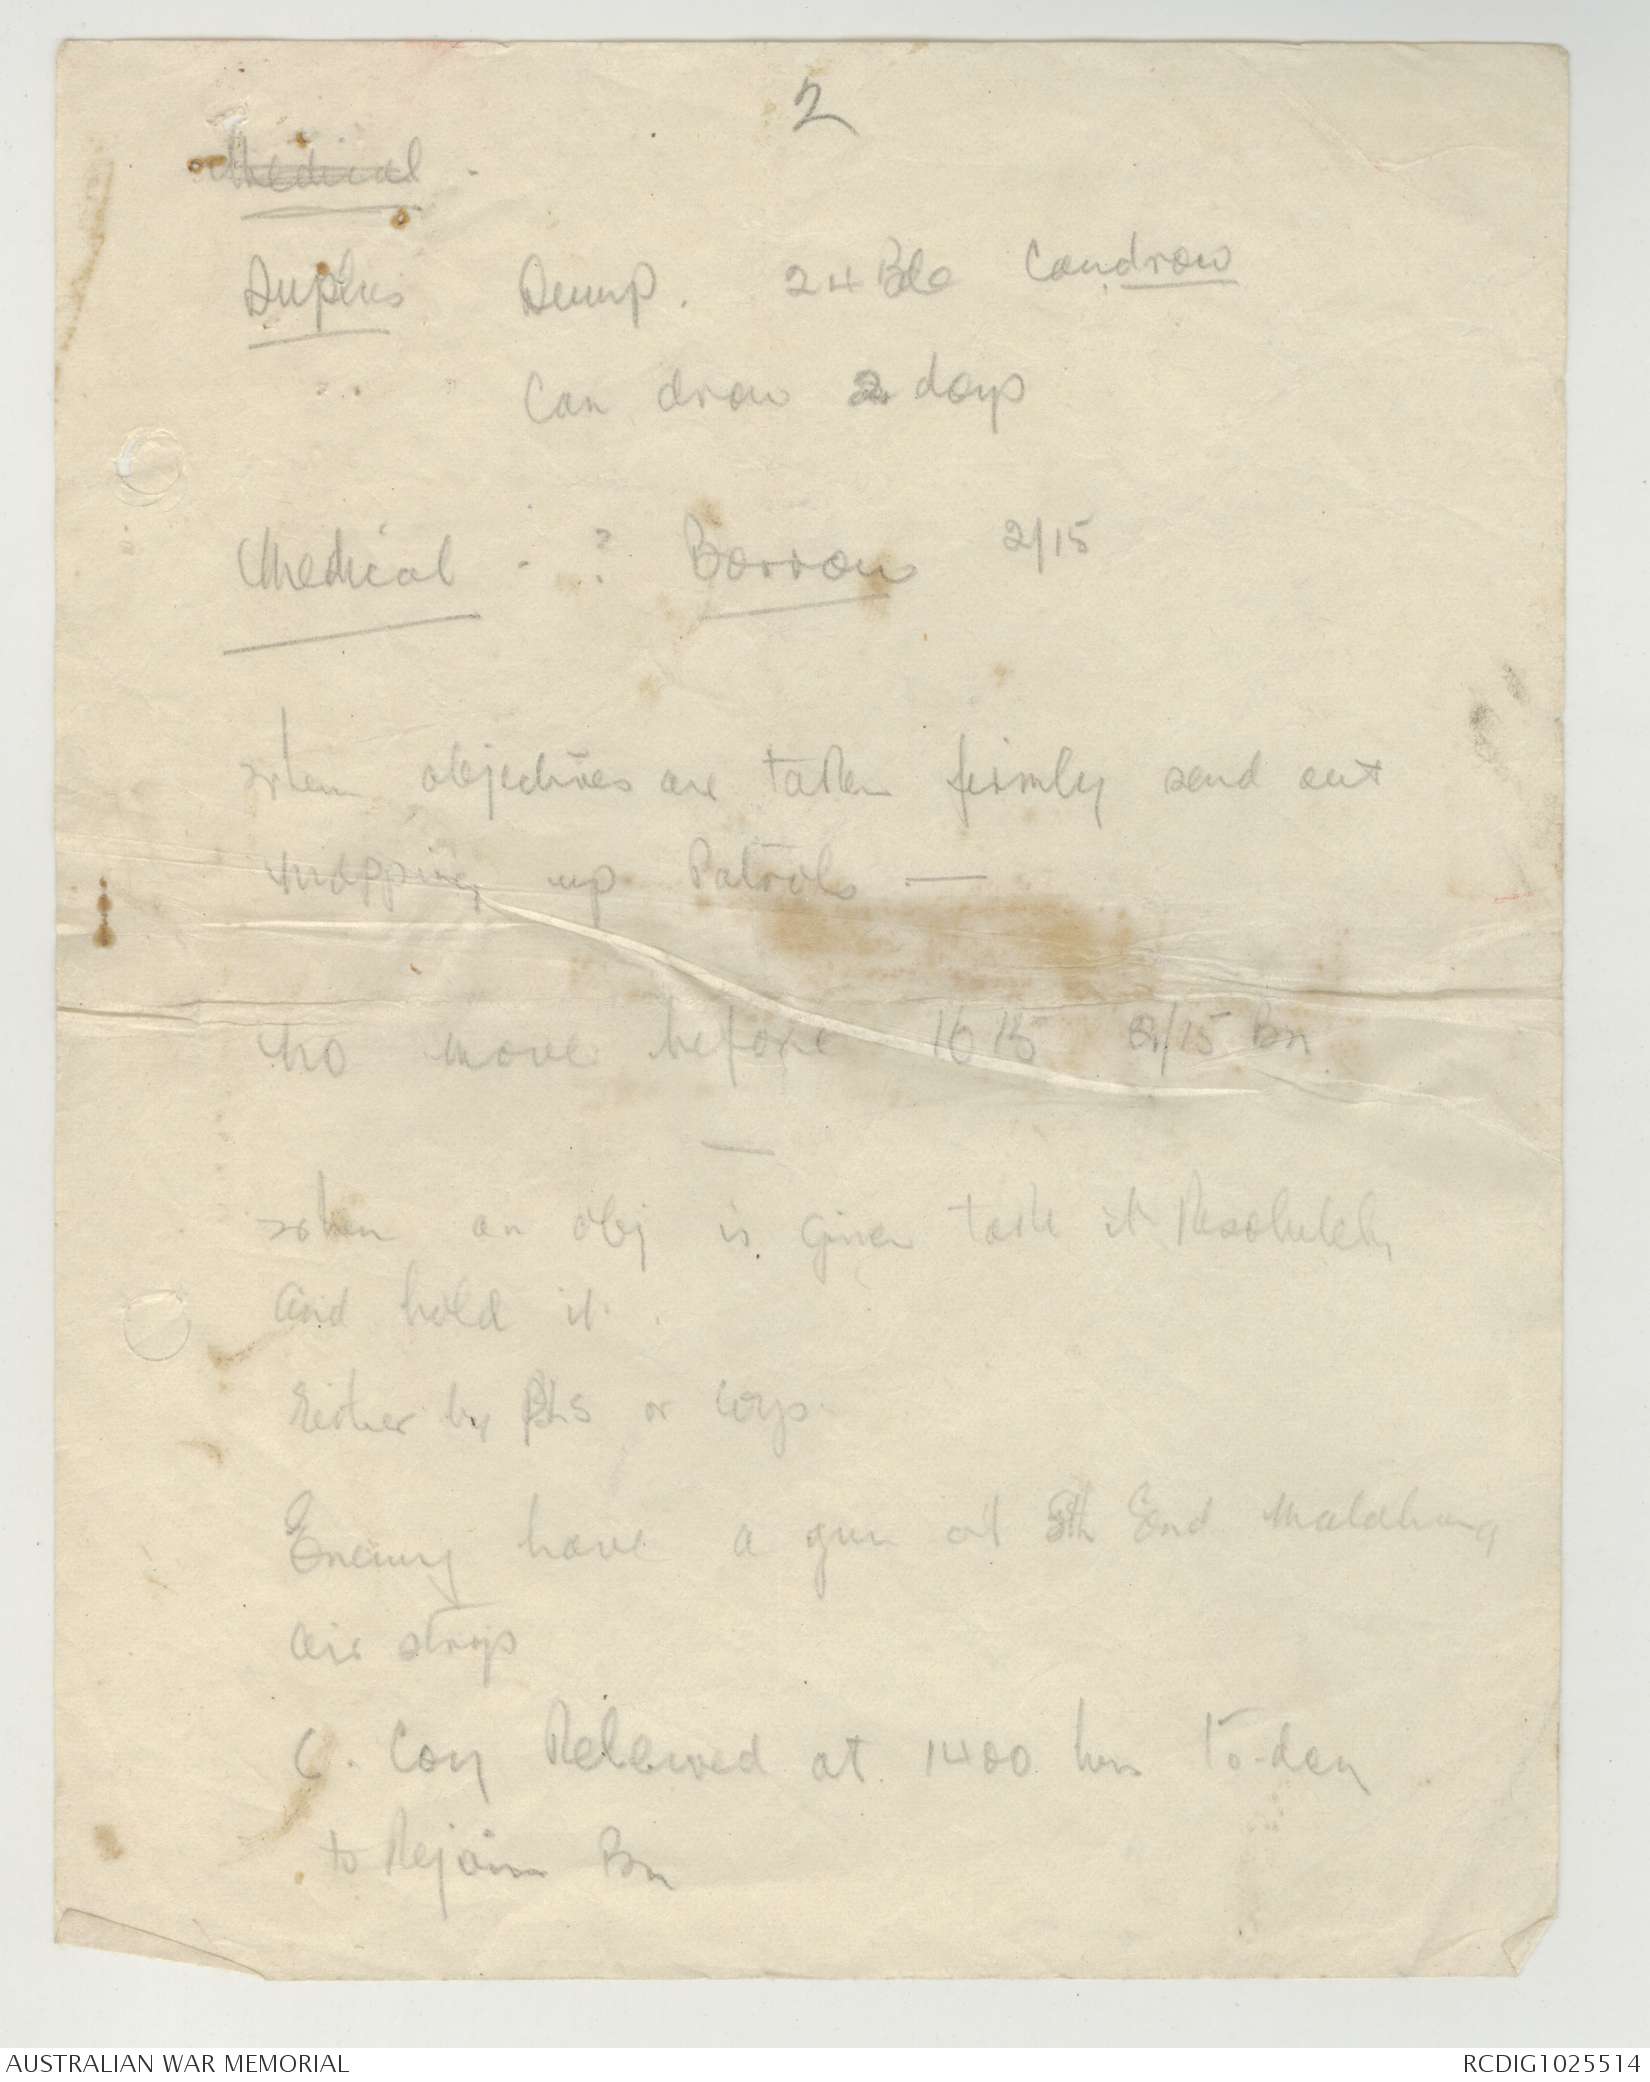 2
Medical .
Duplus Dump. 24 Bde Can draw
Can draw 2 days
Medical - ? Borrow 2/15
when objectives are taken firmly send out
mopping up Patrols —
No move before 1615 2/15 Bn
when an obj is given take it Resolutely
and hold it.
Either by Pls or Coys.
Enemy have a gun at Sth End Malahang
air strips
C. Coy Relieved at 1400 hrs To-day
to Rejoin Bn
AUSTRALIAN WAR MEMORIAL
RCDIG1025514